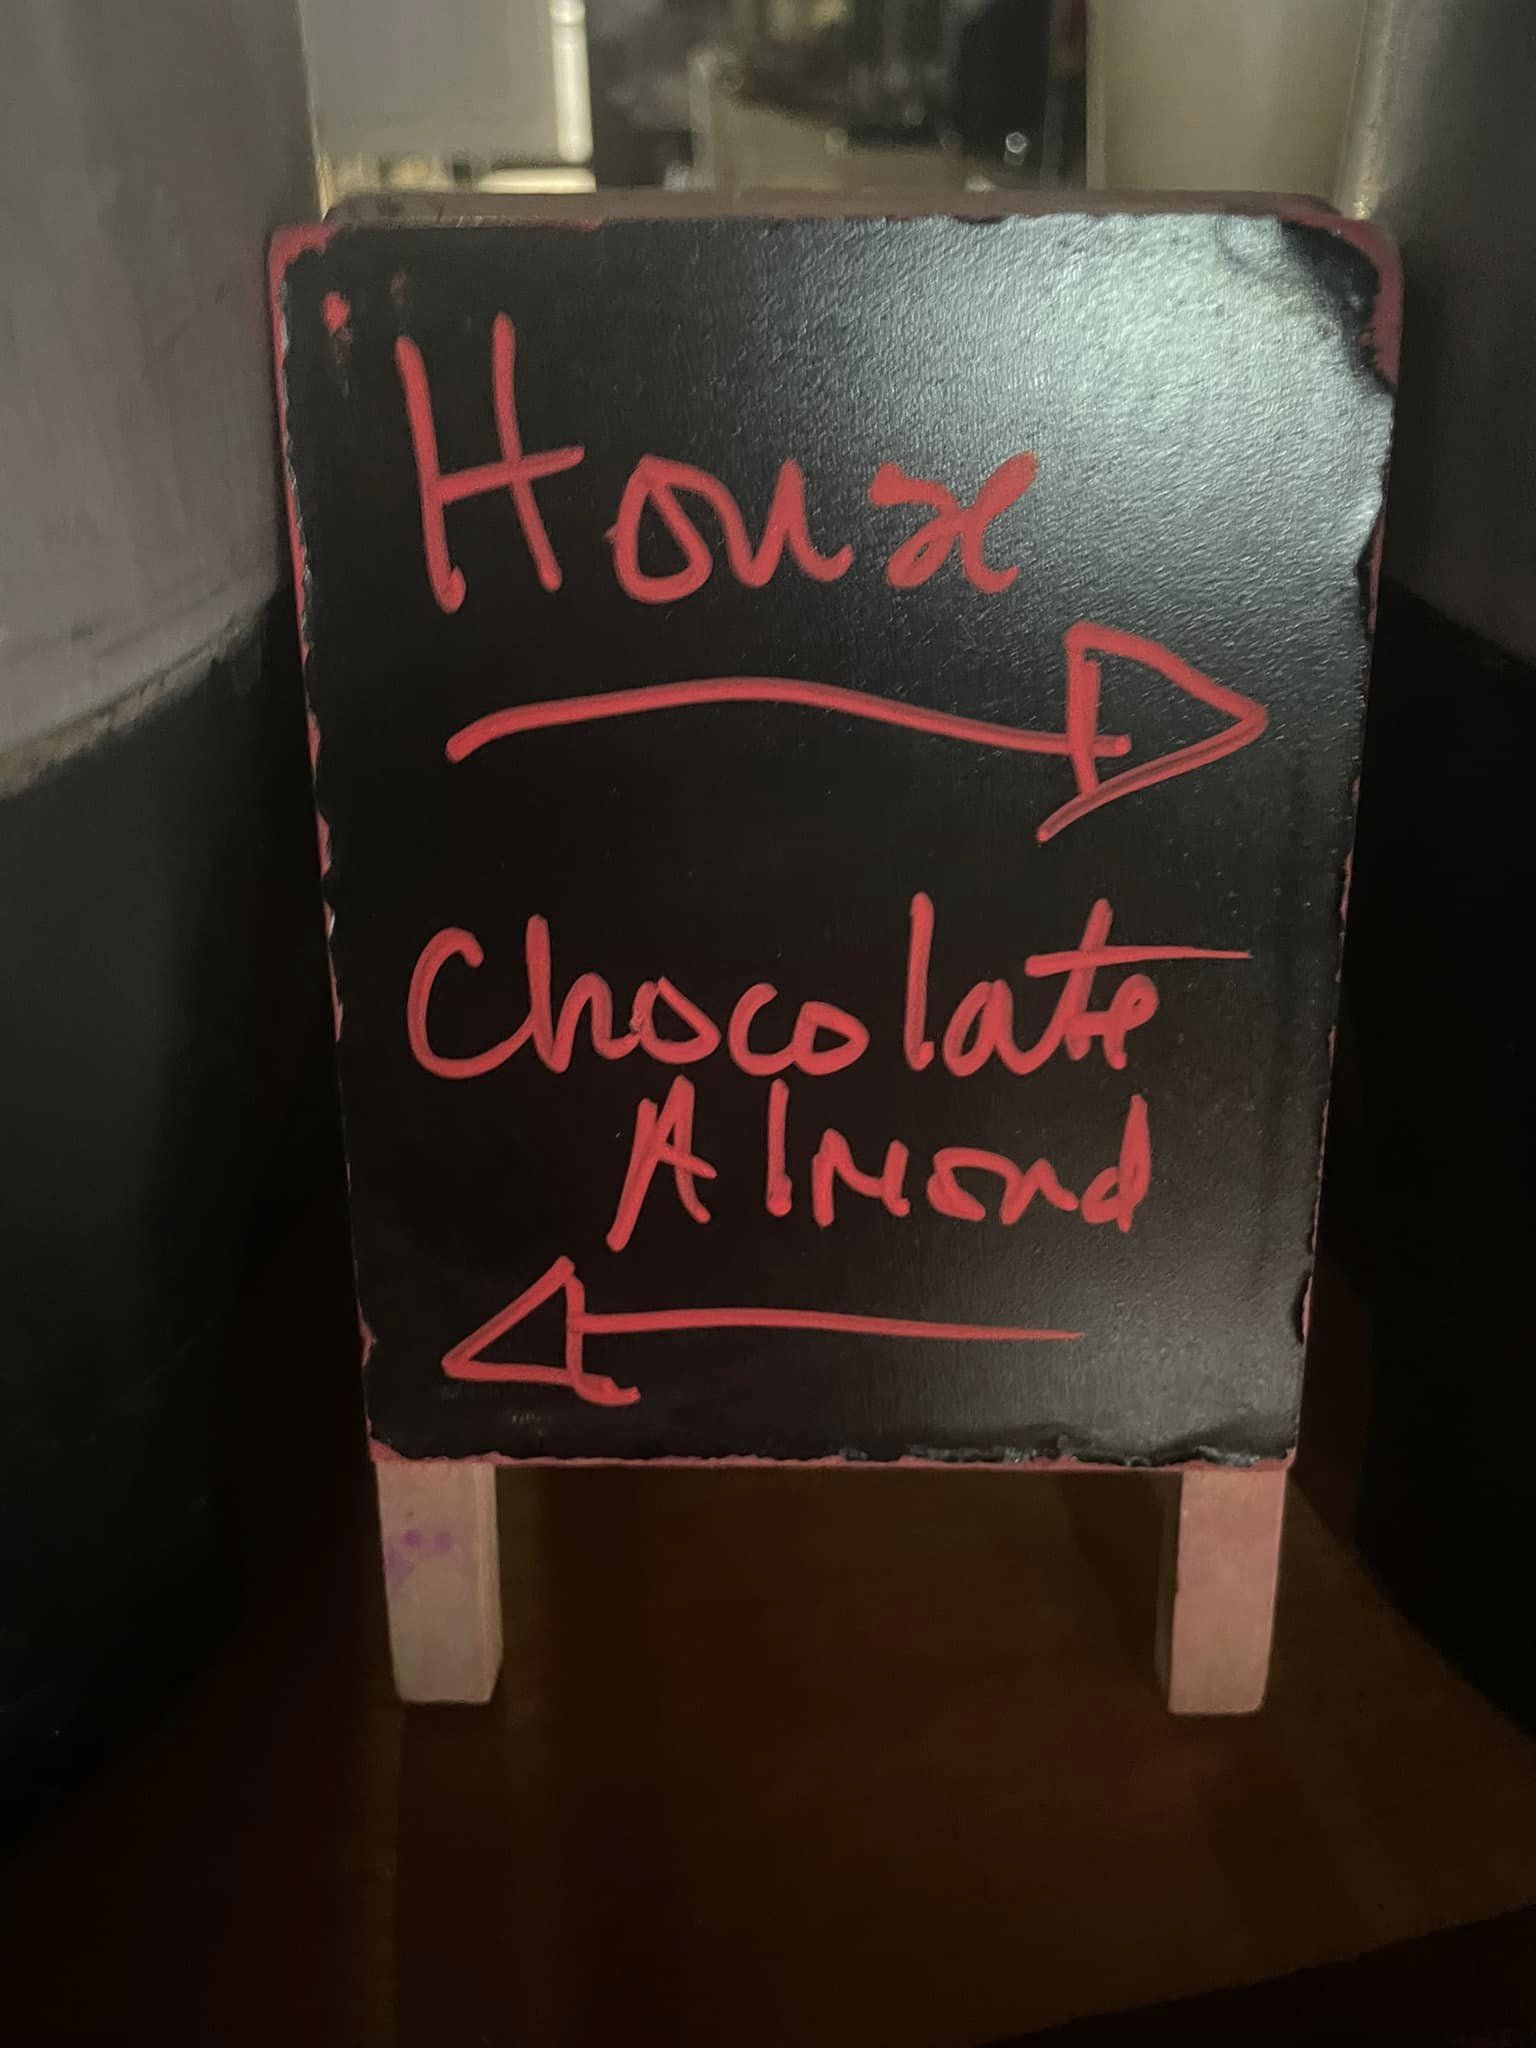 House
Chocolate
Almond